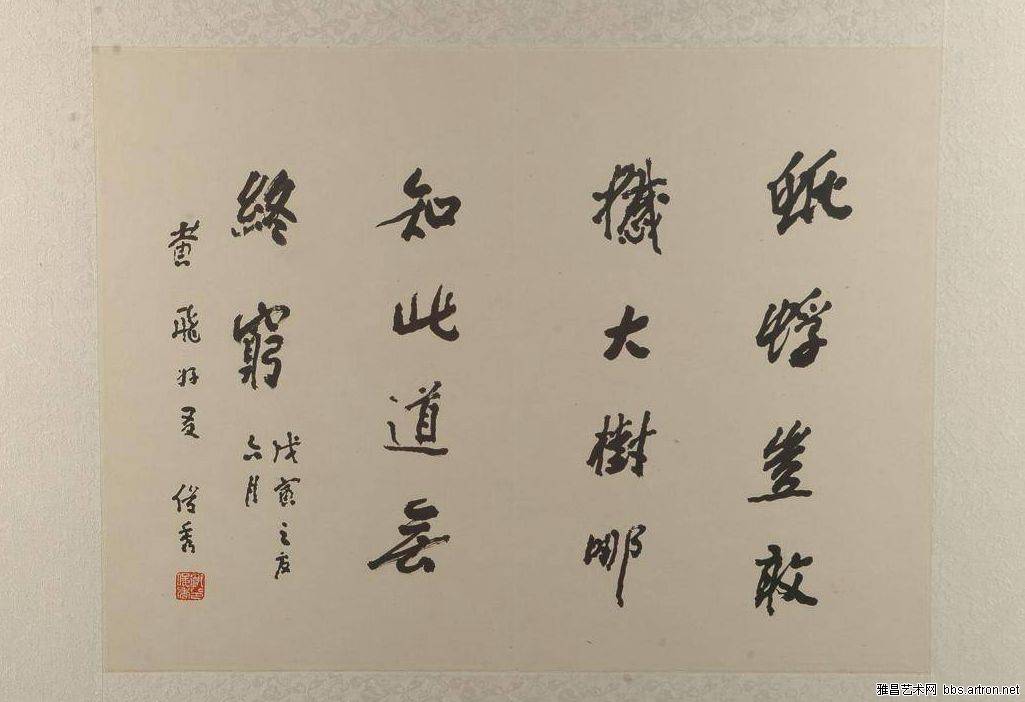 蚍蜉豈敢
撼大樹哪
知此道無
終窮
戊寅之夏
六月
黄飛好友
雅昌艺术网 bbs.artron.net